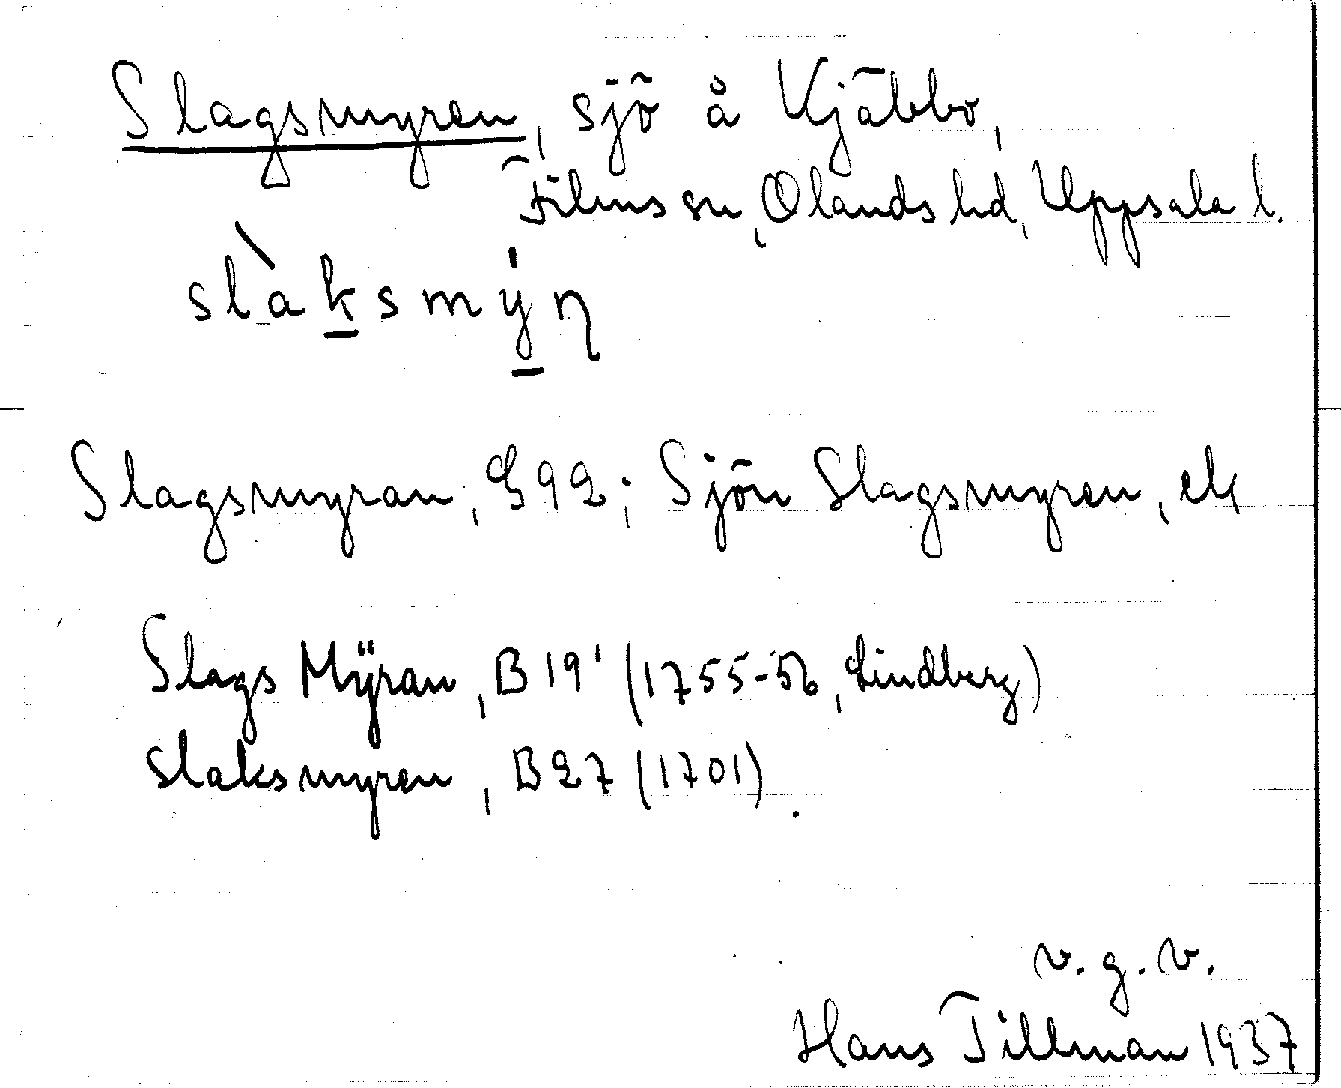 Slagsmyren, sjö å Kjäbbo,
Films sn, Olands hd, Uppsala l.
slàksmýn
Slagsmyran, G92; Sjön Slagsmyren, ek
Slags Mÿran, B 19' (1755-56, Lindberg)
Slaksmyren, B27 (1701).
v. g. v.
Hans Tillman 1937